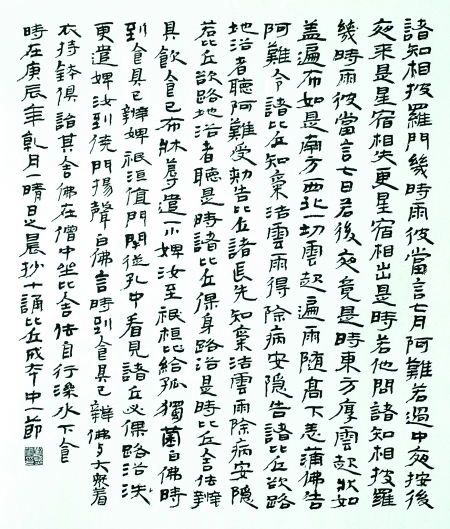 諸知相披羅門幾時雨彼當言七月阿難若過中夜按後
夜来是星宿相失更星宿相出是時若他問諸知相披羅
幾時雨彼當言七日若後夜竟是時東方厚雲起狀如
盖遍布如是南方西北一切雲起遍雨随高下悉蒲佛告
阿難令諸比丘知棄沽雲雨得除病安隐告諸比丘欲路
地浴者聽阿難受勑告比丘諸長先知棄沽雲雨除病安隐
若比丘欲路地浴者聽是時諸比丘倮身路浴是時比丘舍佉辦
具飲食已布牀蓐遣一小婢汝至祇桓比給孤獨薗白佛時
到食具已辦婢祇洹值門閉從孔中看見諸丘必倮路浴泆
更遣婢汝到門揚聲白佛言時到食具已辦佛与大衆着
衣持鉢俱詣其舍佛在僧中坐比舍佉自行澡水下食
時在庚辰年月一晴日之晨抄十誦比丘戒本中一節